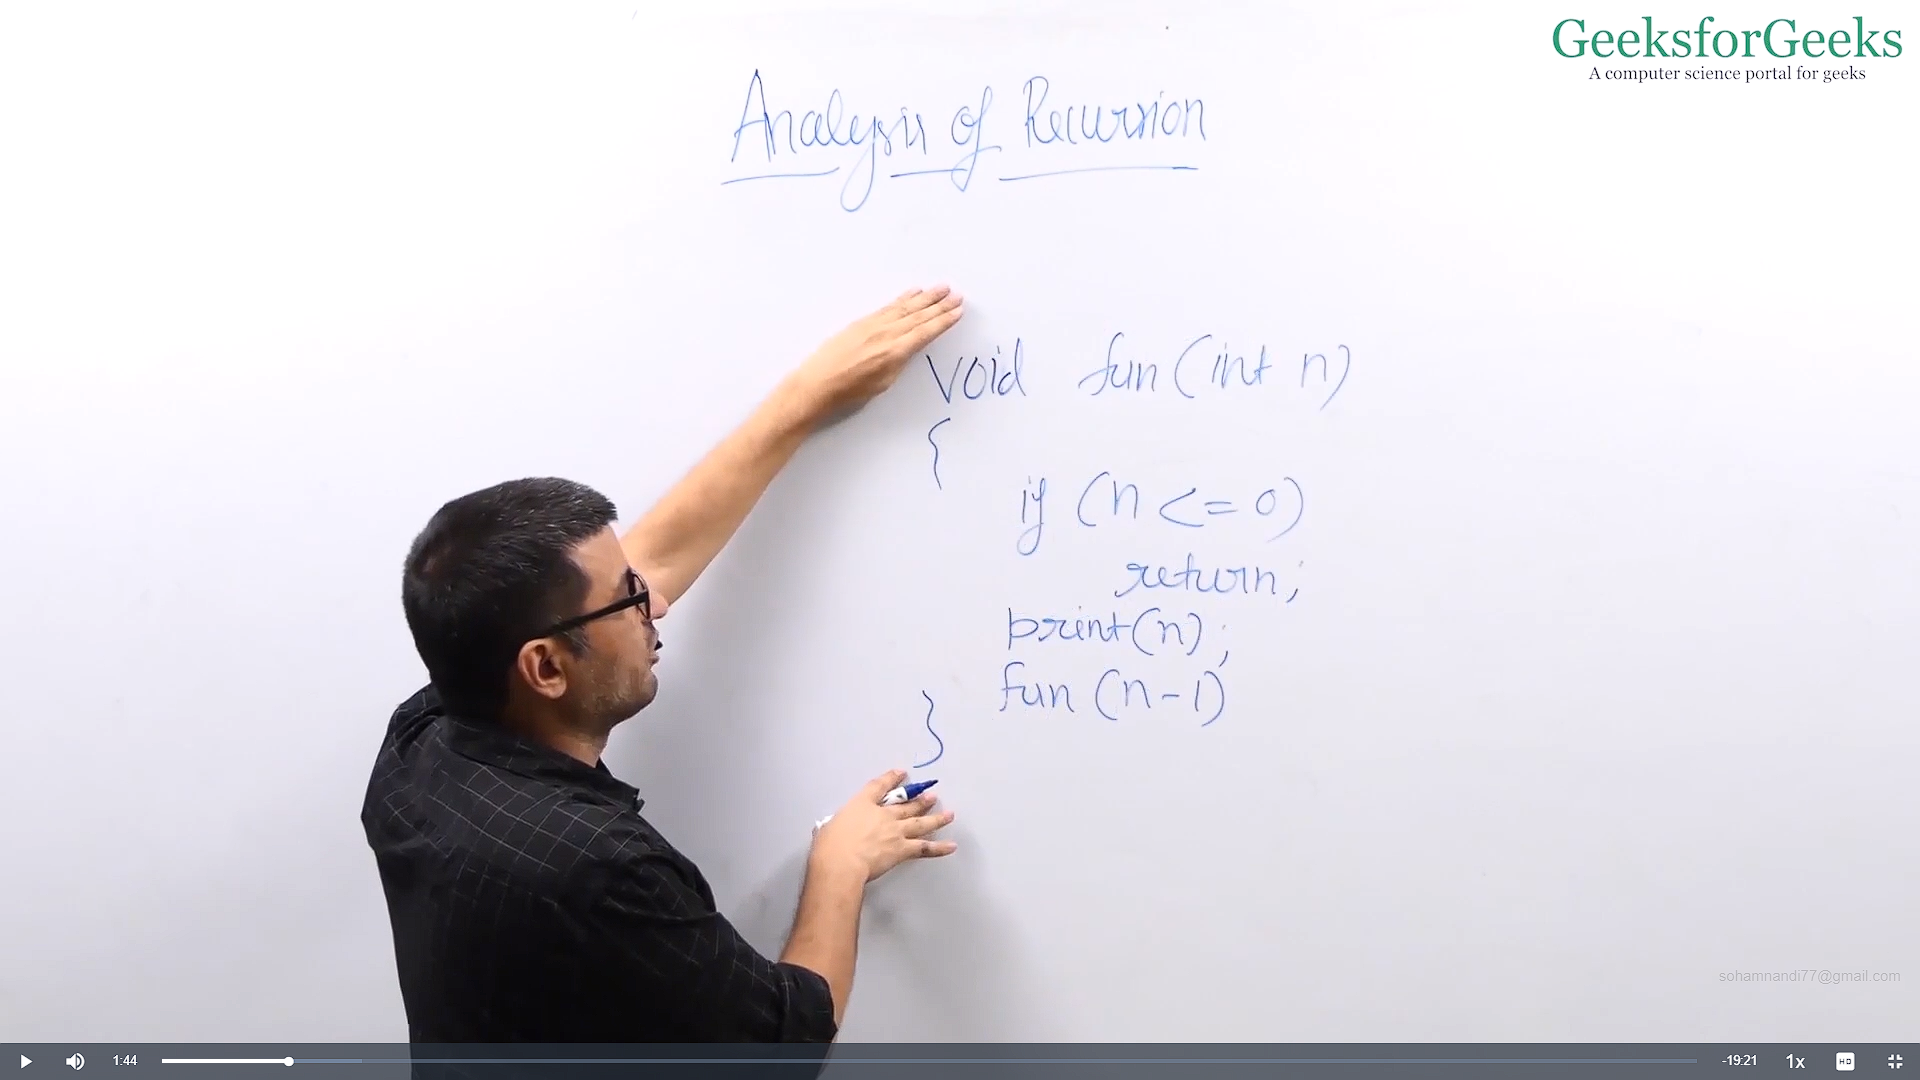 GeeksforGeeks
A computer science portal for geeks
Analysis of Recursion
void fun(int n)
{
if (n <= 0)
return;
print(n);
fun (n-1)
}
sohamnandi77@gmail.com
1:44
-19:21
1x
HD